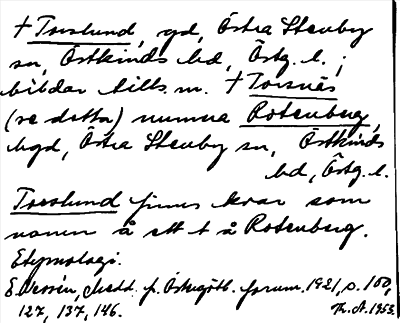 + Torslund, gd, Östra Stenby
sn, Östkinds hd, Östg. l.;
bildar tills. m. + Torsnäs
(se detta) numera Rotenberg,
hgd, Östra Stenby sn, Östkinds
hd, Östg. l.
Torslund finnes kvar som
namn å ett t å Rotenberg.
Etymologi.
E Wessén, Medd. f. Östergötl. fornm. 1921, s. 100,
127, 137, 146.
Th. A. 1953.